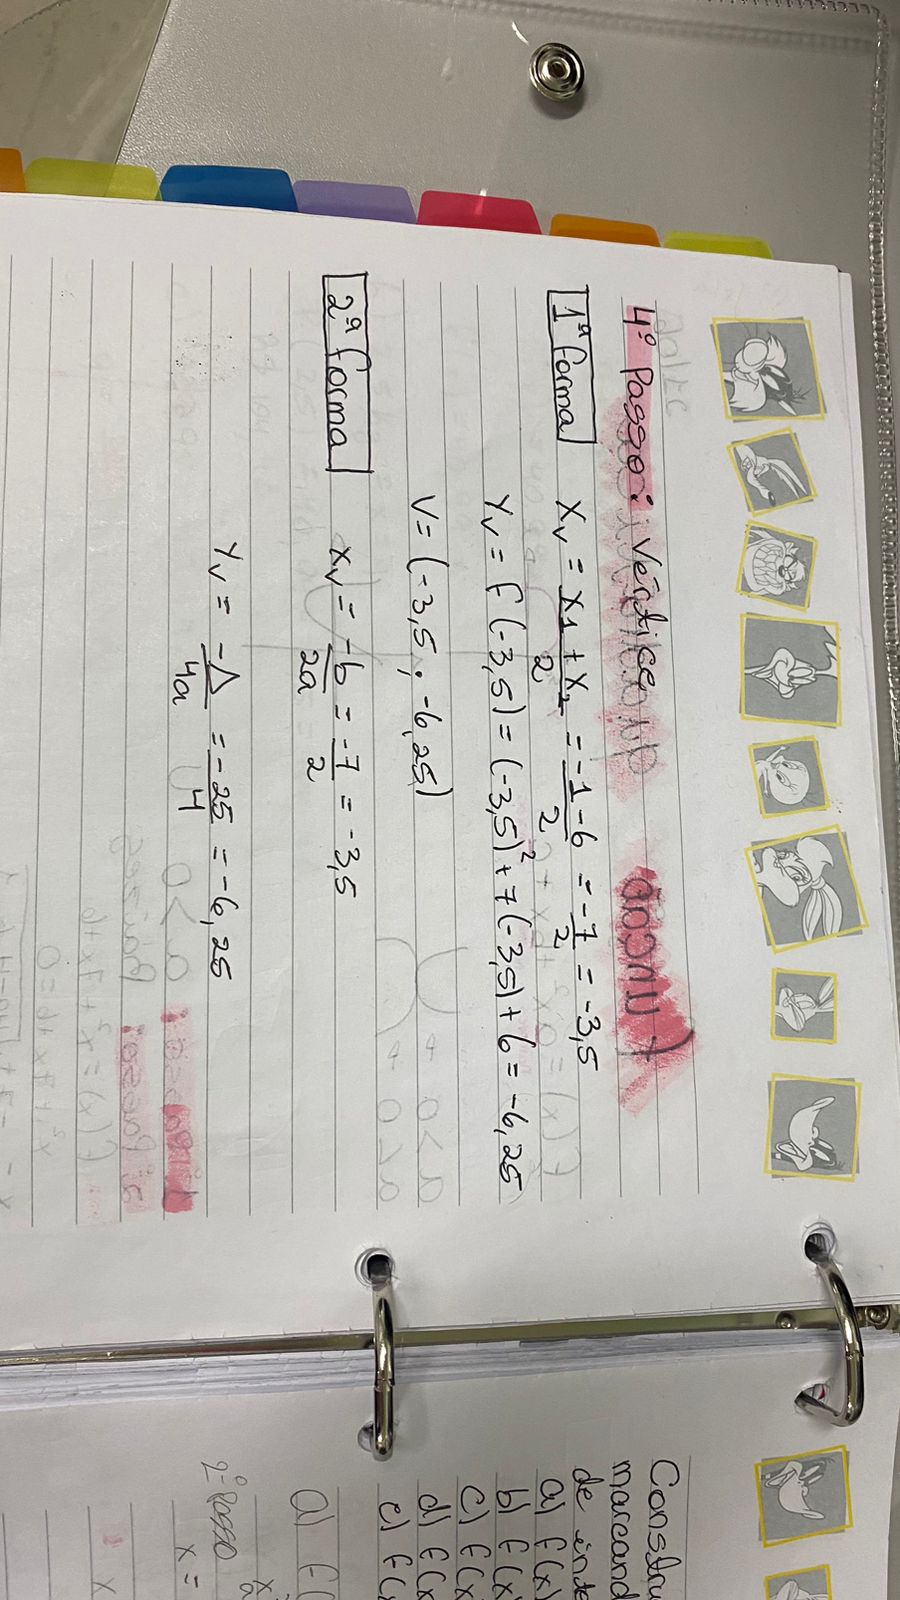 4º Passo: Vértice
1ª forma
Xv = X1 + X2 / 2 = -1-6 / 2 = -7 / 2 = -3,5
Yv = f(-3,5) = (-3,5)² + 7(-3,5) + 6 = -6,25
V = (-3,5 ; -6,25)
2ª forma
Xv = -b / 2a = -7 / 2 = -3,5
Yv = -Δ / 4a = -25 / 4 = -6,25
Constru
marcand
de inte
a) f(x)
b) f(x
c) f(x
d) f(x
e) f(x
a) f(
2º Passo
x =